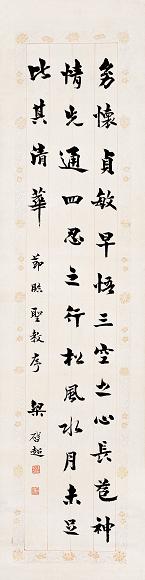 幼懷貞敏早悟三空之心長苞神
情先通四忍之行松風水月未足
比其清華 節臨聖教序 梁啟超